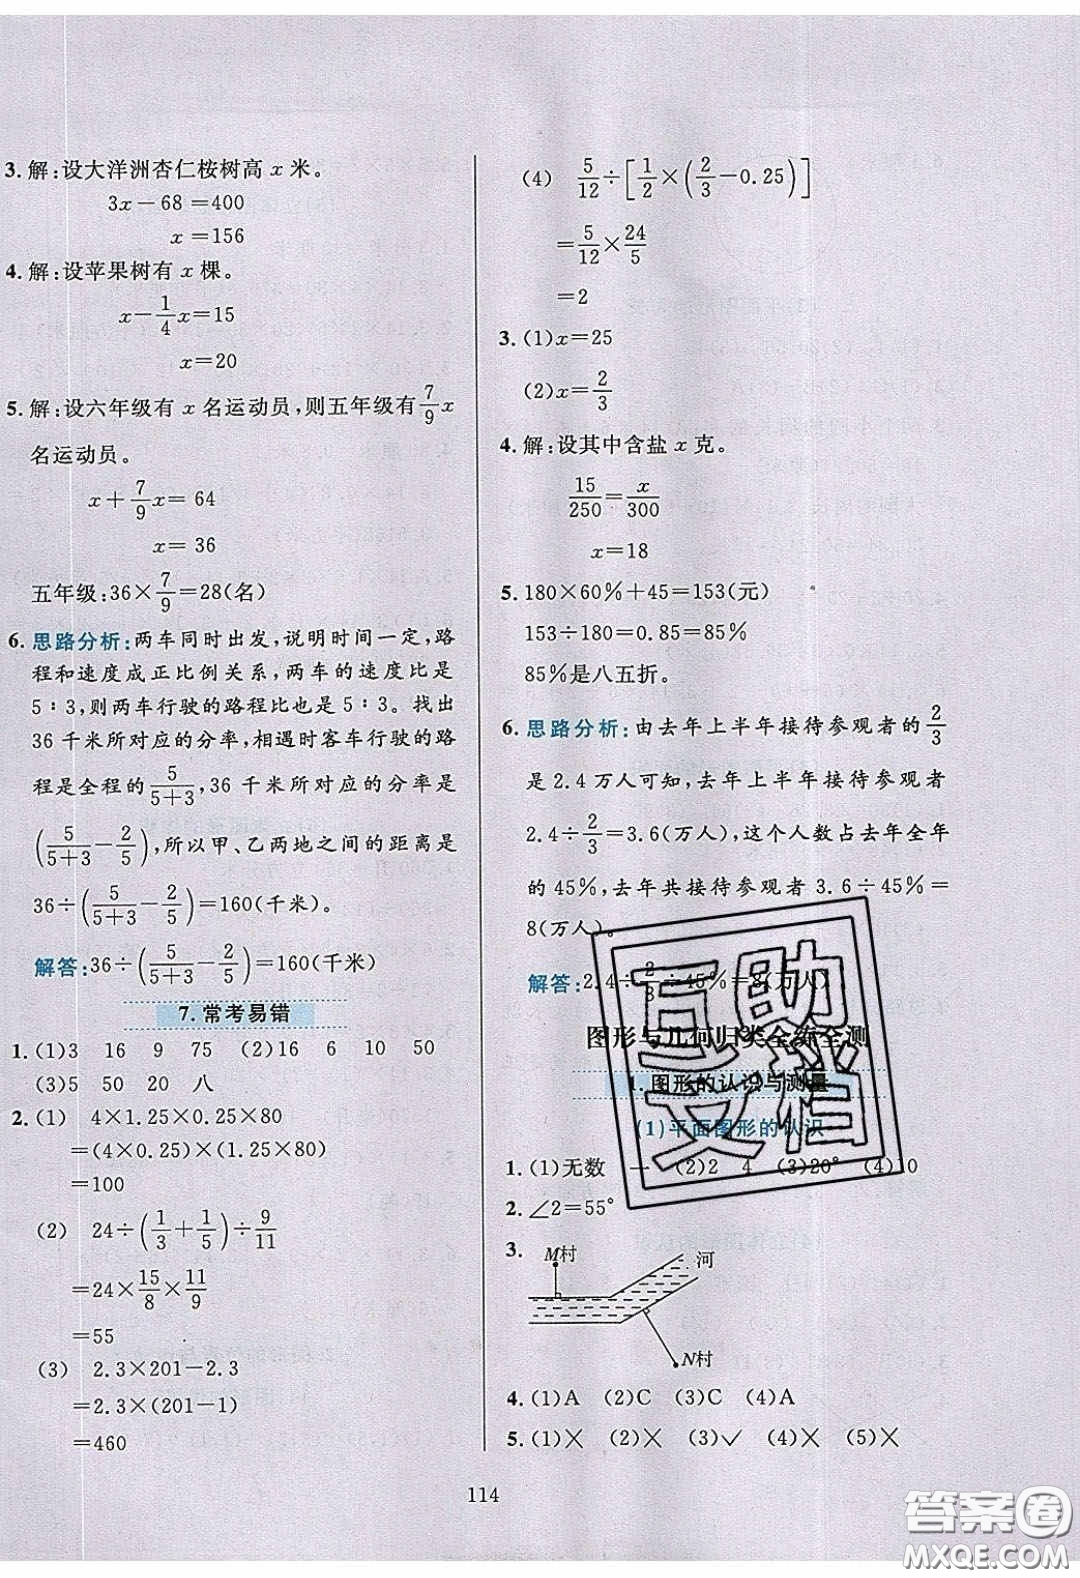 3. 解:设大洋洲杏仁桉树高 x 米。
3x－68＝400
x＝156
4. 解:设苹果树有 x 棵。
x－1/4x＝15
x＝20
5. 解:设六年级有 x 名运动员,则五年级有 7/9x
名运动员。
x＋7/9x＝64
x＝36
五年级:36×7/9＝28(名)
6. 思路分析:两车同时出发,说明时间一定,路
程和速度成正比例关系,两车的速度比是
5∶3,则两车行驶的路程比也是 5∶3。找出
36 千米所对应的分率,相遇时客车行驶的路
程是全程的 5/(5+3),36 千米所对应的分率是
(5/(5+3)－2/5),所以甲、乙两地之间的距离是
36÷(5/(5+3)－2/5)＝160(千米)。
解答:36÷(5/(5+3)－2/5)＝160(千米)
7. 常考易错
1. (1)3 16 9 75 (2)16 6 10 50
(3)5 50 20 八
2. (1) 4×1.25×0.25×80
＝(4×0.25)×(1.25×80)
＝100
(2) 24÷(1/3＋1/5)÷9/11
＝24×15/8×11/9
＝55
(3) 2.3×201－2.3
＝2.3×(201－1)
＝460
(4) 5/12÷[1/2×(2/3－0.25)]
＝5/12×24/5
＝2
3. (1)x＝25
(2)x＝2/3
4. 解:设其中含盐 x 克。
15/250＝x/300
x＝18
5. 180×60%＋45＝153(元)
153÷180＝0.85＝85%
85%是八五折。
6. 思路分析:由去年上半年接待参观者的 2/3
是 2.4 万人可知,去年上半年接待参观者
2.4÷2/3＝3.6(万人),这个人数占去年全年
的 45%,去年共接待参观者 3.6÷45%＝
8(万人)。
解答:2.4÷2/3÷45%＝8(万人)
图形与几何归类全练全测
1. 图形的认识与测量
(1)平面图形的认识
1. (1)无数 一 (2)2 4 (3)20° (4)10
2. ∠2＝55°
3.
M村
河
N村
4. (1)A (2)C (3)C (4)A
5. (1)× (2)× (3)✓ (4)× (5)×
114
互助
文档
答案圈
MXQE.COM